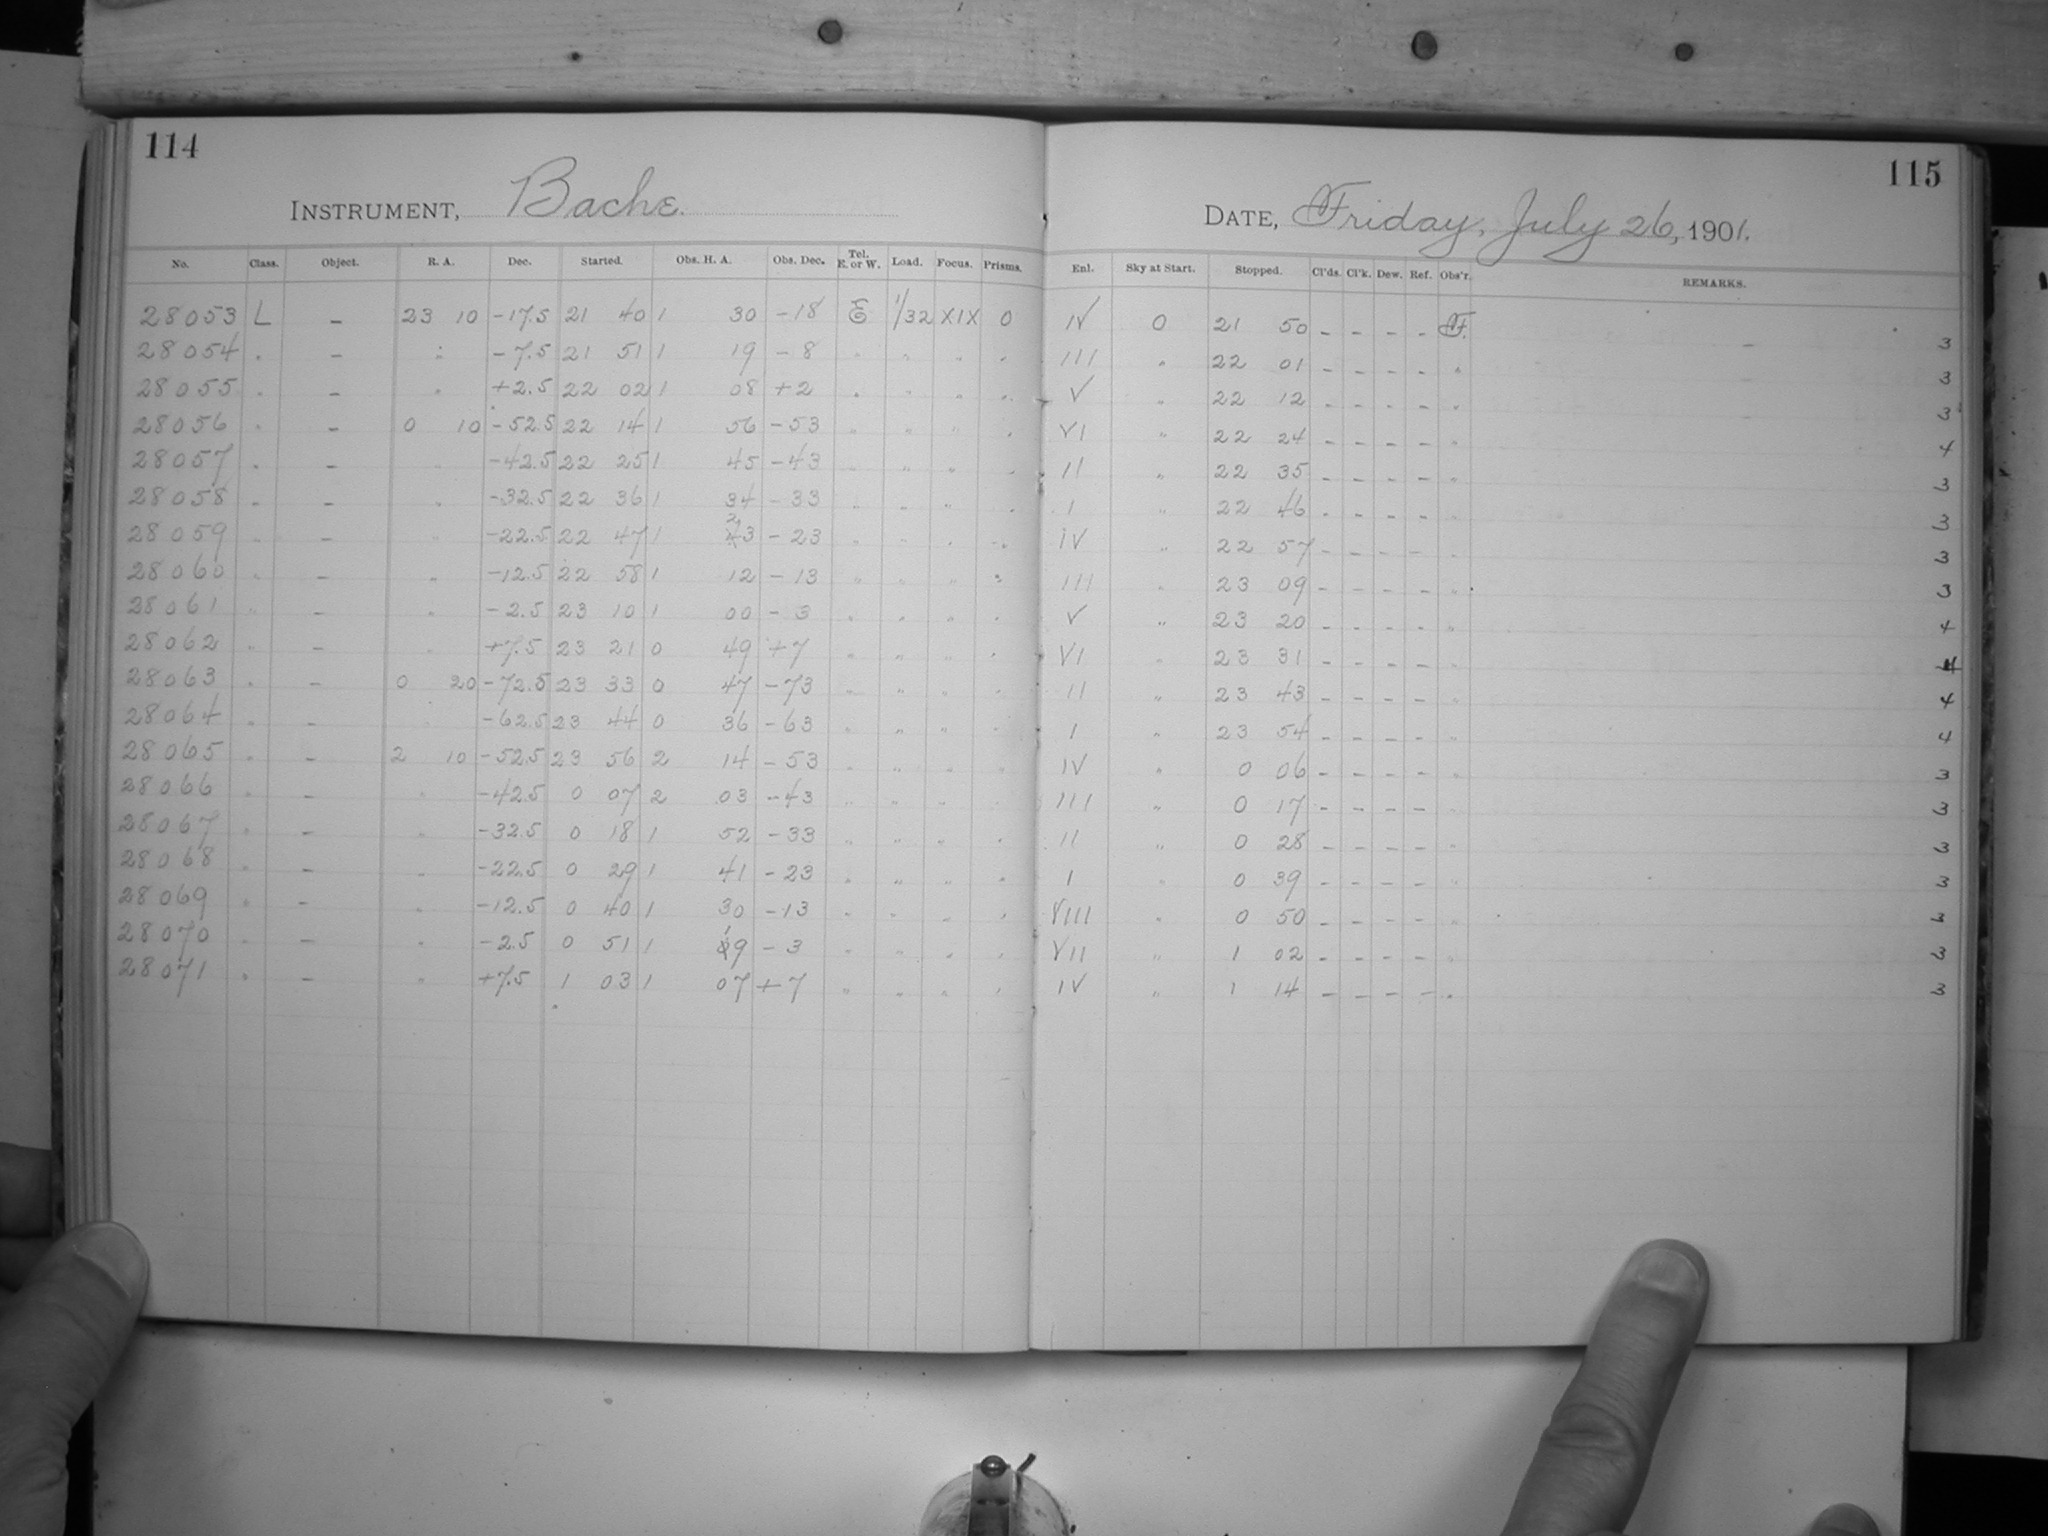 114
INSTRUMENT, Bache.
No. Class. Object. R. A. Dec. Started. Obs. H. A. Obs. Dec. Tel. E. or W. Load. Focus. Prisms.
28053 L – 23 10 -17.5 21 40 1 30 -18 E 1/32 XIX 0
28054 " – " -7.5 21 51 1 19 -8 " " " "
28055 " – " +2.5 22 02 1 08 +2 " " " "
28056 " – 0 10 -52.5 22 14 1 56 -53 " " " "
28057 " – " -42.5 22 25 1 45 -43 " " " "
28058 " – " -32.5 22 36 1 34 -33 " " " "
28059 " – " -22.5 22 47 1 23 -23 " " " "
28060 " – " -12.5 22 58 1 12 -13 " " " "
28061 " – " -2.5 23 10 1 00 -3 " " " "
28062 " – " +7.5 23 21 0 49 +7 " " " "
28063 " – 0 20 -72.5 23 33 0 47 -73 " " " "
28064 " – " -62.5 23 44 0 36 -63 " " " "
28065 " – 2 10 -52.5 23 56 2 14 -53 " " " "
28066 " – " -42.5 0 07 2 03 -43 " " " "
28067 " – " -32.5 0 18 1 52 -33 " " " "
28068 " – " -22.5 0 29 1 41 -23 " " " "
28069 " – " -12.5 0 40 1 30 -13 " " " "
28070 " – " -2.5 0 51 1 19 -3 " " " "
28071 " – " +7.5 1 03 1 07 +7 " " " "
115
DATE, Friday, July 26, 1901.
Enl. Sky at Start. Stopped. Cl'ds. Cl'k. Dew. Ref. Obs'r. REMARKS.
IV 0 21 50 – – – – F. 3
III " 22 01 – – – – " 3
V " 22 12 – – – – " 3
VI " 22 24 – – – – " 4
II " 22 35 – – – – " 3
I " 22 46 – – – – " 3
IV " 22 57 – – – – " 3
III " 23 09 – – – – " 3
V " 23 20 – – – – " 4
VI " 23 31 – – – – " 4
II " 23 43 – – – – " 4
I " 23 54 – – – – " 4
IV " 0 06 – – – – " 3
III " 0 17 – – – – " 3
II " 0 28 – – – – " 3
I " 0 39 – – – – " 3
VIII " 0 50 – – – – " 3
VII " 1 02 – – – – " 3
IV " 1 14 – – – – " 3